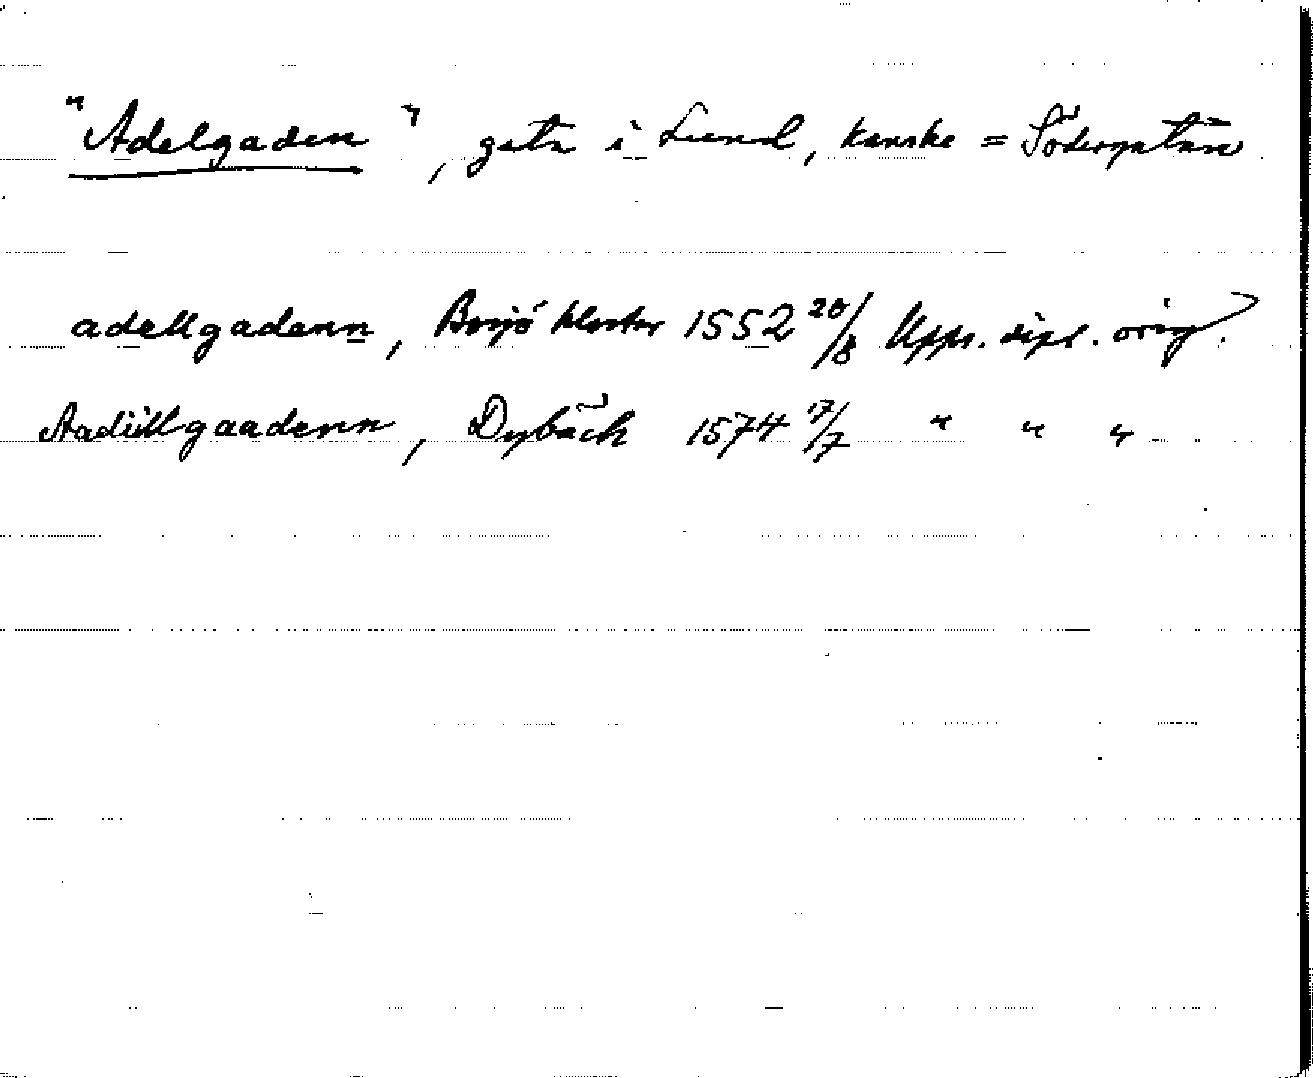 "Adelgaden", gata i Lund, kanske = Södergatan
adellgadenn, Bosjö kloster 1552 20/8 Upps. dipl. orig.
Aadüllgaadenn, Dybäck 1574 17/7 " " "